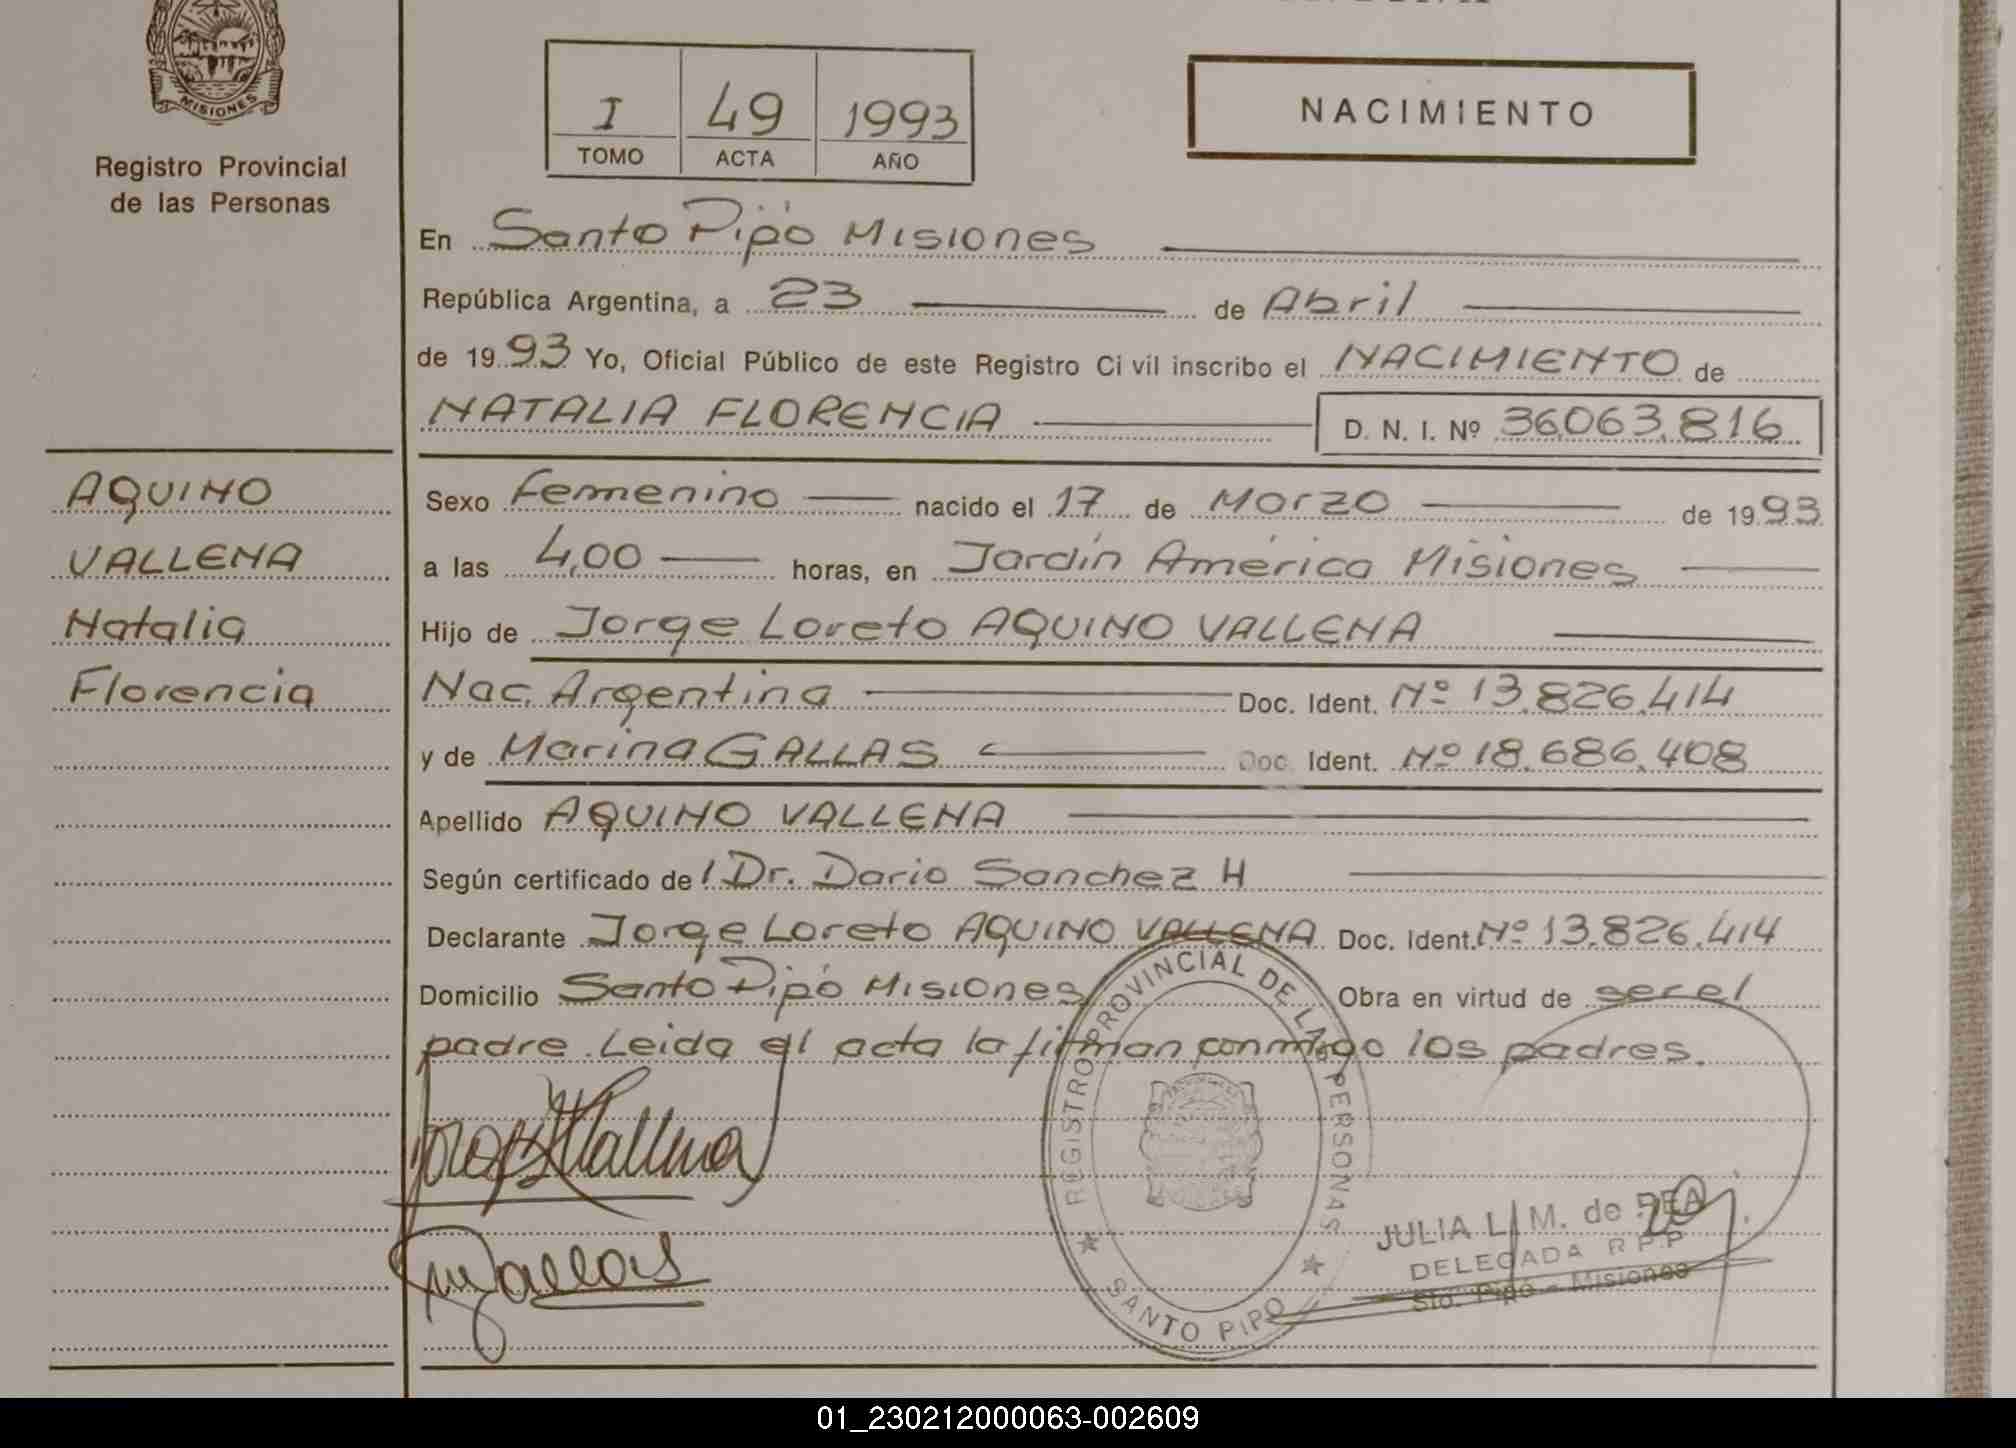 MISIONES
Registro Provincial
de las Personas
I 49 1993
TOMO ACTA AÑO
NACIMIENTO
En Santo Pipó Misiones
República Argentina, a 23 de Abril
de 1993 Yo, Oficial Público de este Registro Civil inscribo el NACIMIENTO de
NATALIA FLORENCIA D. N. I. Nº 36.063.816
AQUINO
VALLENA
Natalia
Florencia
Sexo Femenino nacido el 17 de Marzo de 1993
a las 4,00 horas, en Jardín América Misiones
Hijo de Jorge Loreto AQUINO VALLENA
Nac. Argentina Doc. Ident. Nº 13.826.414
y de Marina GALLAS Doc. Ident. Nº 18.686.408
Apellido AQUINO VALLENA
Según certificado de l Dr. Dario Sanchez H
Declarante Jorge Loreto AQUINO VALLENA Doc. Ident. Nº 13.826.414
Domicilio Santo Pipó Misiones Obra en virtud de ser el
padre. Leida el acta la firman conmigo los padres.
REGISTRO PROVINCIAL DE LAS PERSONAS
SANTO PIPO
JULIA L. M. de REA
DELEGADA R.P.P
Sto. Pipó - Misiones
01_230212000063-002609